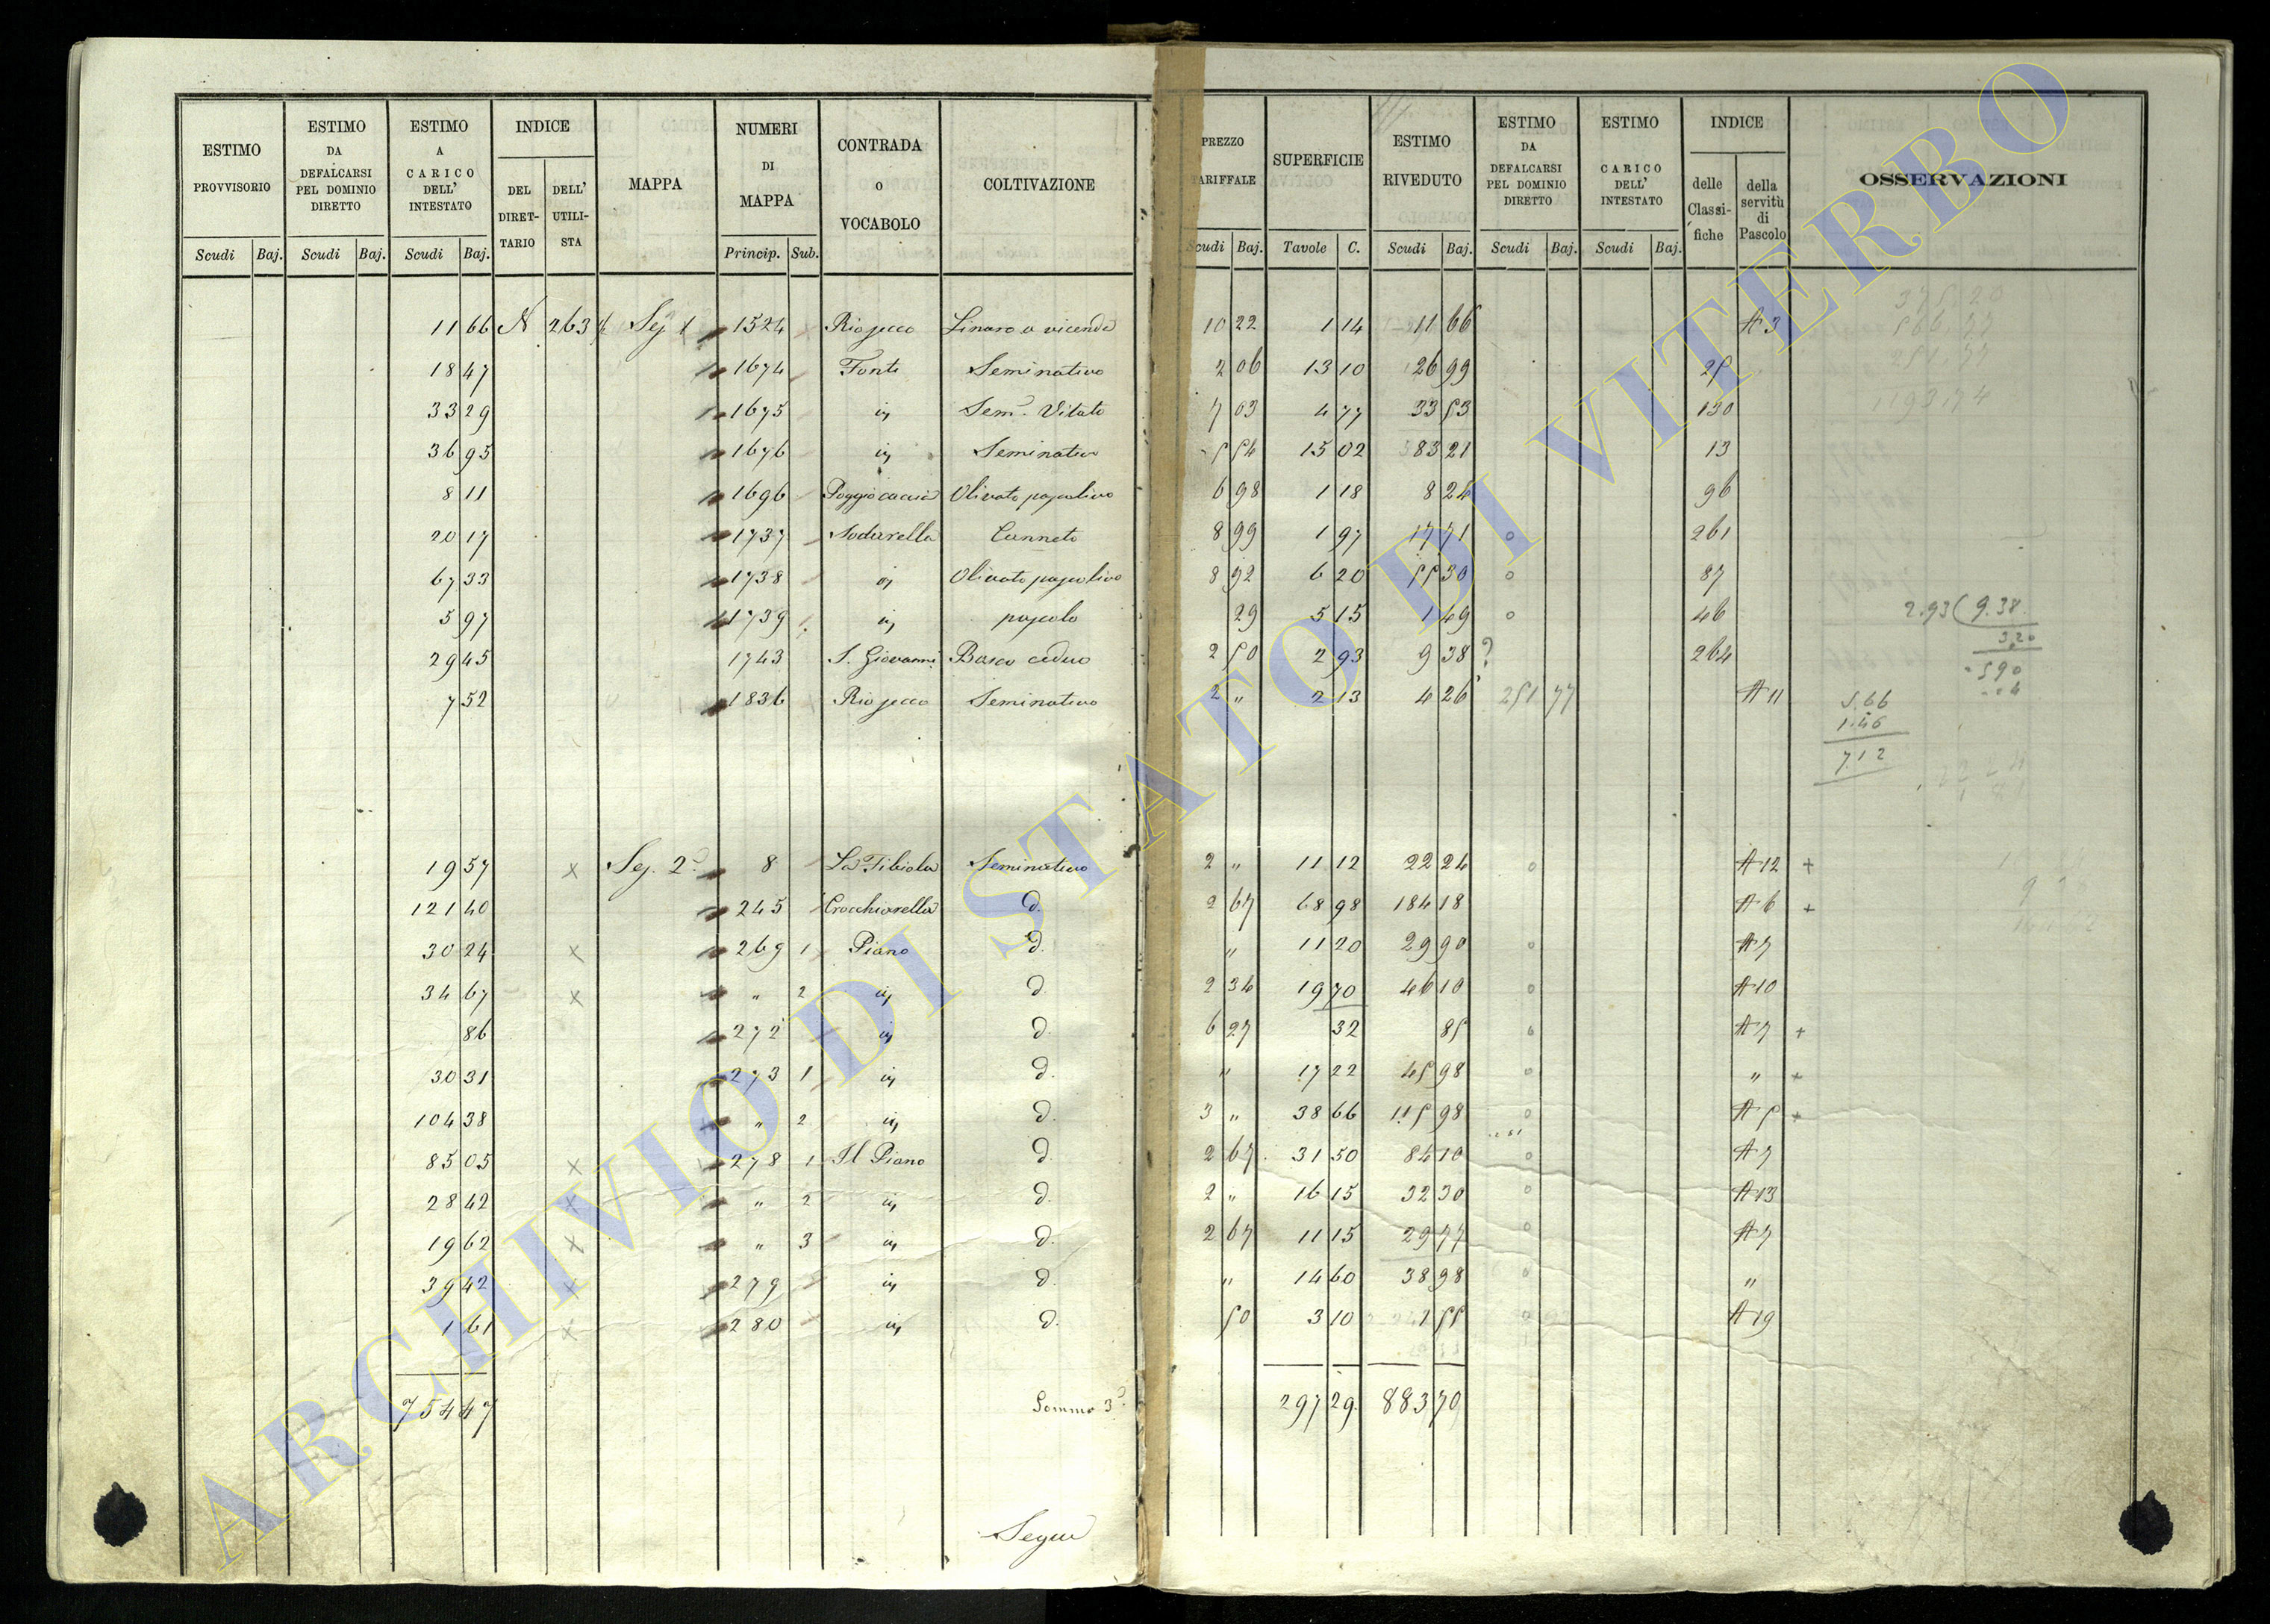 ESTIMO PROVVISORIO | ESTIMO DA DEFALCARSI PEL DOMINIO DIRETTO | ESTIMO A CARICO DELL' INTESTATO | INDICE DEL DIRET-TARIO | DELL' UTILI-STA | MAPPA | NUMERI DI MAPPA | CONTRADA O VOCABOLO | COLTIVAZIONE | PREZZO TARIFFALE | SUPERFICIE | ESTIMO RIVEDUTO | ESTIMO DA DEFALCARSI PEL DOMINIO DIRETTO | ESTIMO CARICO DELL' INTESTATO | INDICE delle Classi-fiche | della servitù di Pascolo | OSSERVAZIONI
Scudi | Baj. | Scudi | Baj. | Scudi | Baj. | Princip. | Sub. | Scudi | Baj. | Tavole | C. | Scudi | Baj. | Scudi | Baj. | Scudi | Baj.
11 66 N 263 Sej 1 1524 Riosecco Linaro a vicenda 10 22 1 14 11 66 A 3
18 47 1674 Fonti Seminativo 2 06 13 10 26 99 25
33 29 1675 is Sem. Vitato 7 03 4 77 33 53 130
36 95 1676 is Seminativo 5 54 15 02 83 21 13
8 11 1696 Poggio caccia Olivato pascolivo 6 98 1 18 8 24 96
20 17 1737 Sodarella Canneto 8 99 1 97 17 71 o 261
67 33 1738 is Olivato pascolivo 8 92 6 20 55 30 o 87
5 97 1739 is pascolo 29 5 15 1 49 o 46
2.93 ( 9.38
3.20
590
29 45 1743 S. Giovanni Bosco ceduo 2 50 2 93 9 38 ? 264
7 52 1836 Riosecco Seminativo 2 " 2 13 4 26 251 77 A 11
5.66
1.46
7.12
19 57 x Sej. 2a 8 La Fibiola Seminativo 2 " 11 12 22 24 o A 12 +
121 40 245 Crocchiarella d. 2 67 68 98 184 18 A 6 +
30 24 x 269 1 Piano d. " 11 20 29 90 o A 7
34 67 x " 2 is d. 2 34 19 70 46 10 o A 10
86 272 is d. 6 27 32 85 o A 7 +
30 31 273 1 is d. " 17 22 45 98 o " +
104 38 " 2 is d. 3 " 38 66 115 98 o A 5 +
85 05 x 278 1 Il Piano d. 2 67 31 50 84 10 o A 7
28 42 x " 2 is d. 2 " 16 15 32 30 o A 13
19 62 x " 3 is d. 2 67 11 15 29 77 o A 7
39 42 x 279 is d. " 14 60 38 98 o "
1 61 x 280 is d. 50 3 10 1 55 o A 19
754 47 Somma 3a 297 29 883 70
Segue
ARCHIVIO DI STATO DI VITERBO